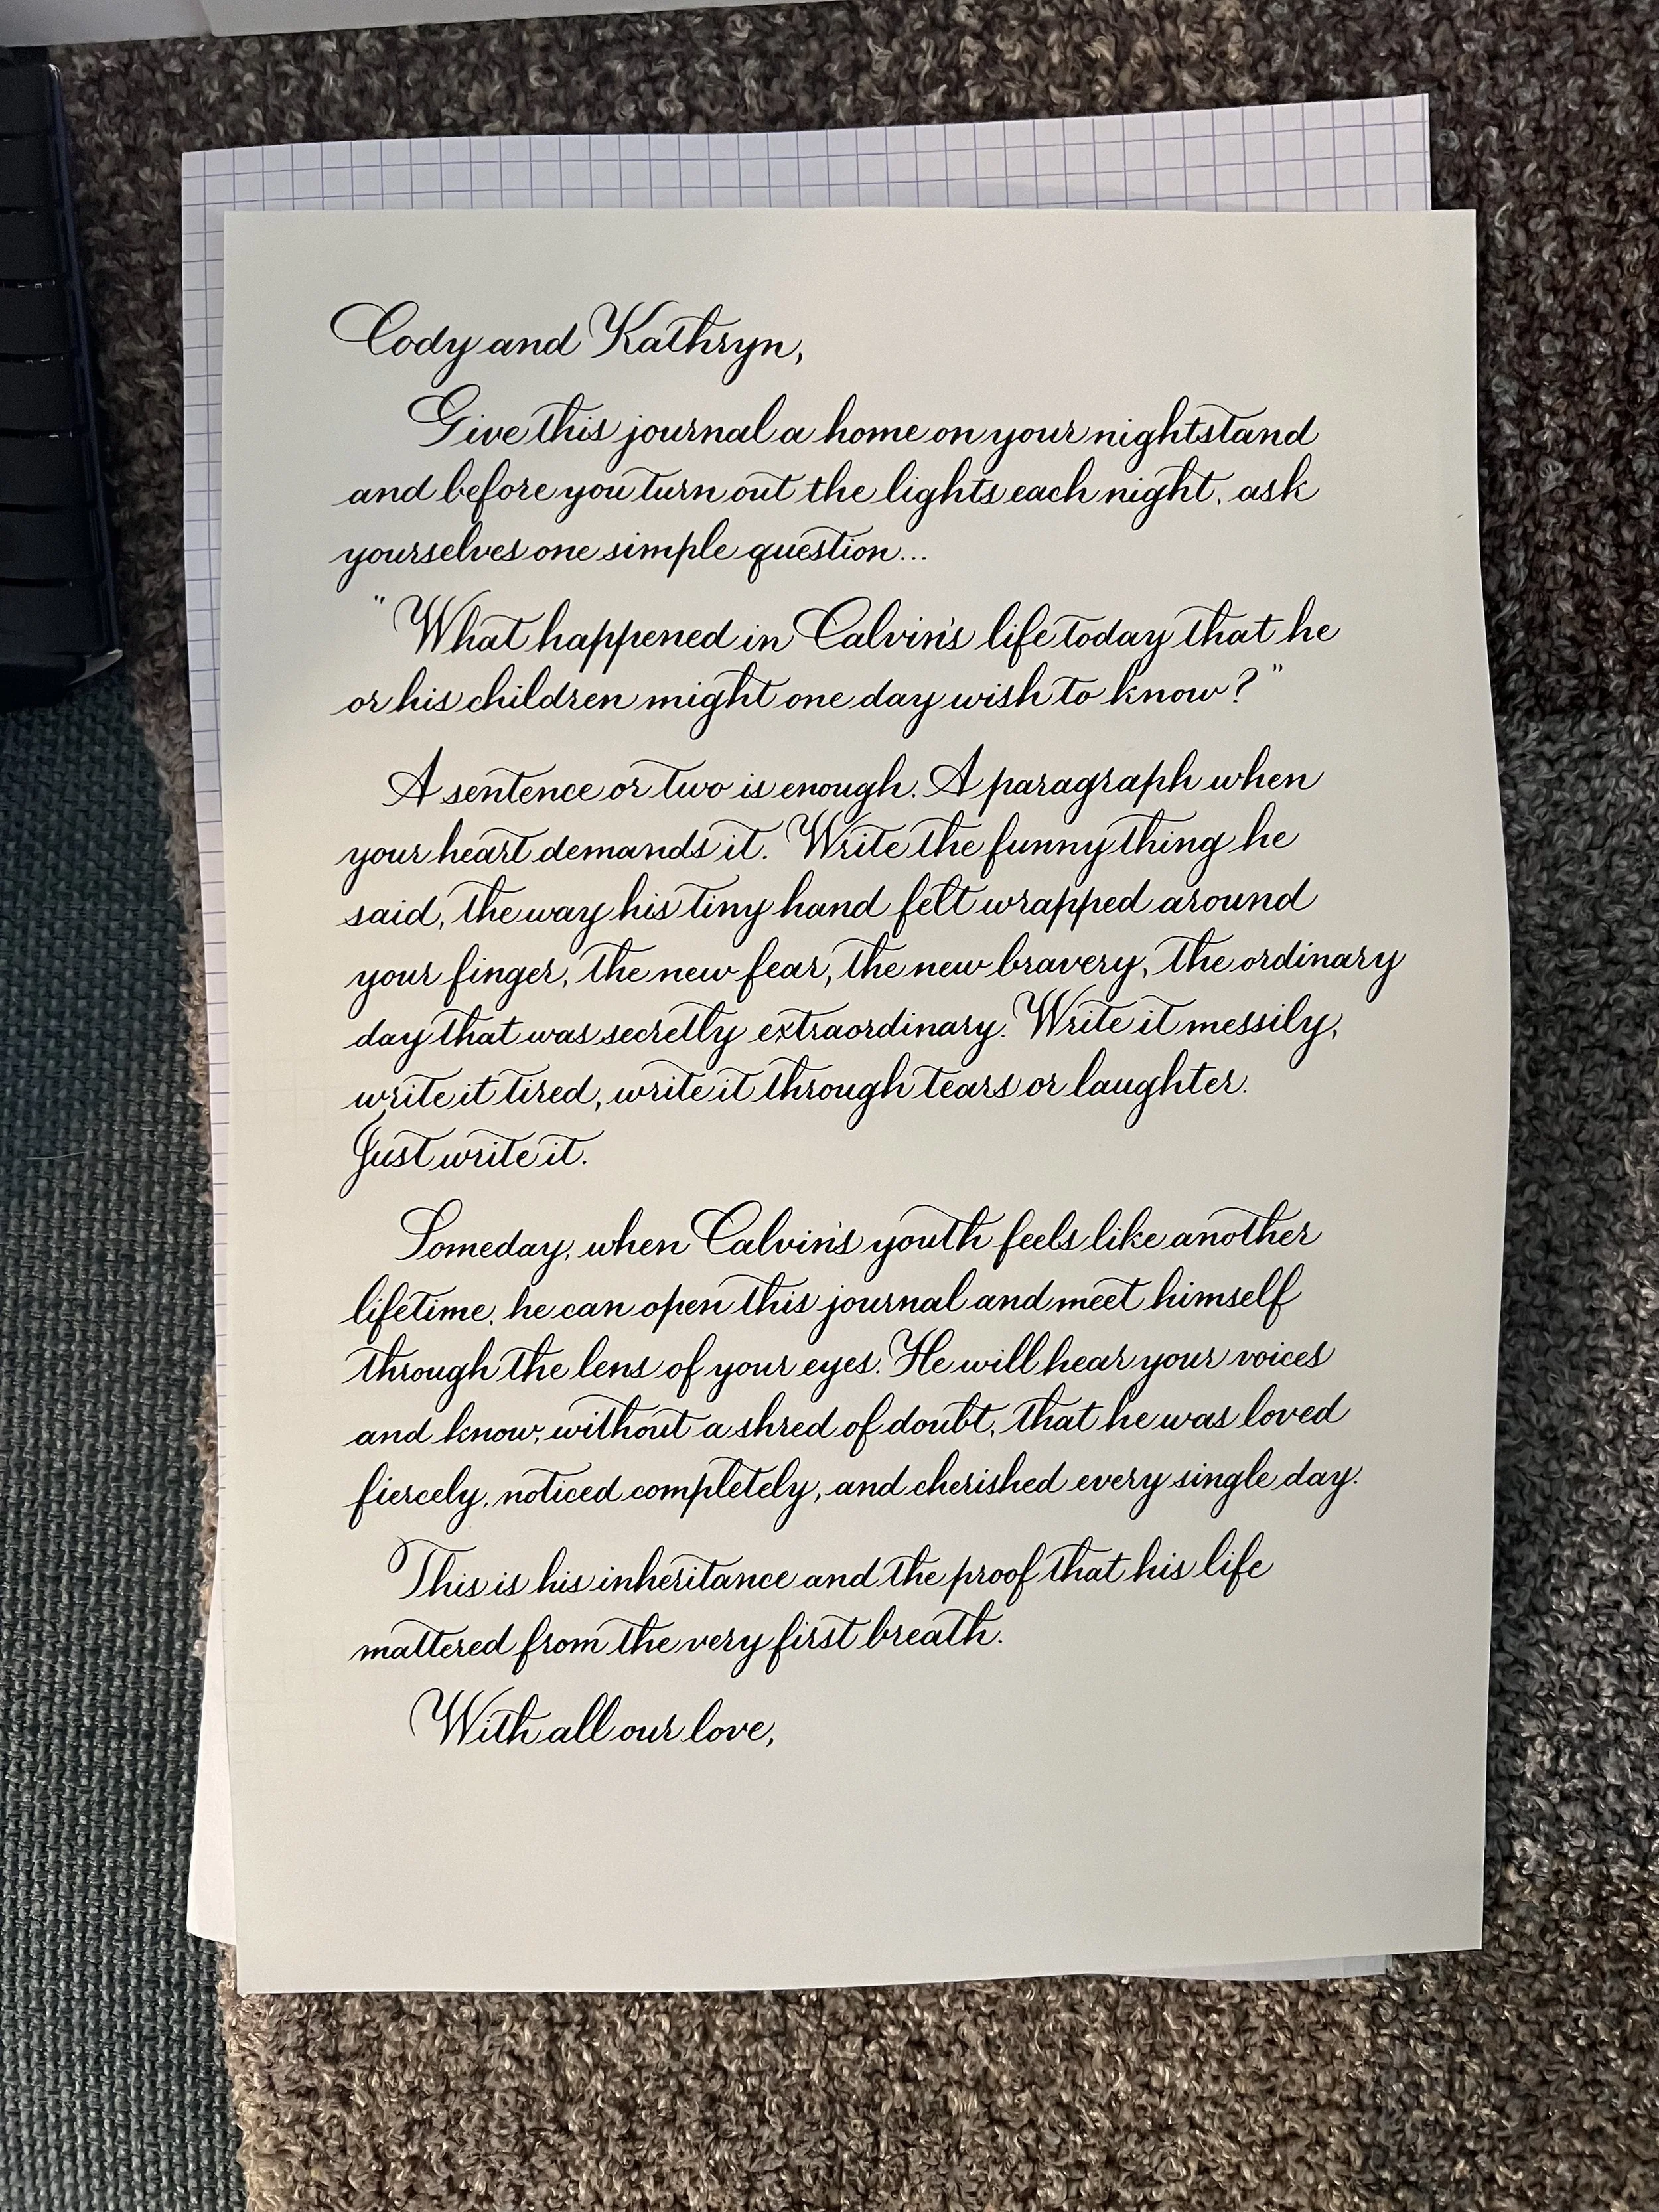 Cody and Kathryn,
Give this journal a home on your nightstand
and before you turn out the lights each night, ask
yourselves one simple question...
"What happened in Calvin's life today that he
or his children might one day wish to know?"
A sentence or two is enough. A paragraph when
your heart demands it. Write the funny thing he
said, the way his tiny hand felt wrapped around
your finger, the new fear, the new bravery, the ordinary
day that was secretly extraordinary. Write it messily,
write it tired, write it through tears or laughter.
Just write it.
Someday, when Calvin's youth feels like another
lifetime, he can open this journal and meet himself
through the lens of your eyes. He will hear your voices
and know, without a shred of doubt, that he was loved
fiercely, noticed completely, and cherished every single day.
This is his inheritance and the proof that his life
mattered from the very first breath.
With all our love,